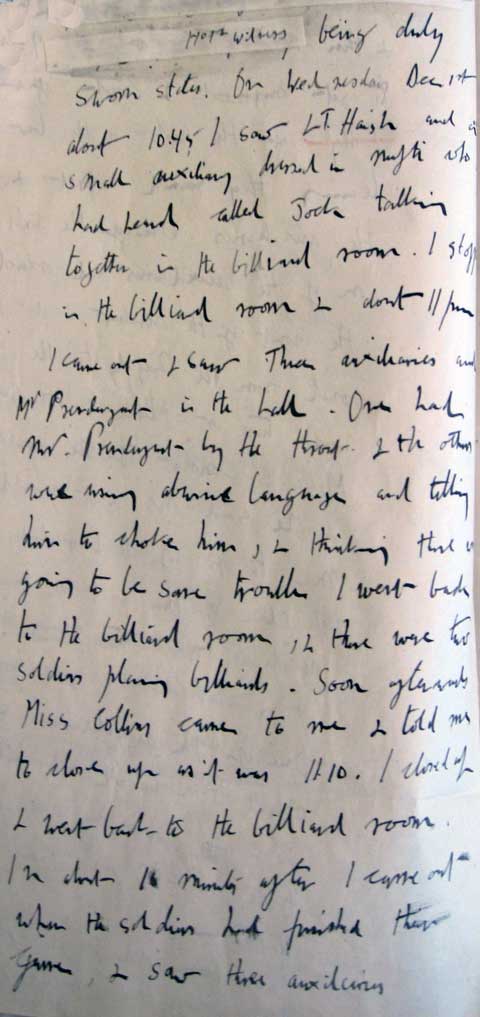 witness, being duly
Sworn states. On Wednesday Dec 1st
about 10.45 I saw LT. Haigh and a
small auxiliary dressed in mufti who
had heard called Jock talking
together in the billiard room. I
in the billiard room & about 11 pm
I came out & saw Three auxiliaries and
Mr Prendergast in the hall. One had
Mr. Prendergast by the throat & the others
were using abusive language and telling
him to choke him, & thinking there
going to be some trouble I went back
to the billiard room, & there were two
soldiers playing billiards. Soon afterwards
Miss Collins came to me & told me
to close up as it was 11.10. I closed up
& went back to the billiard room.
In about minutes after I came out
when the soldiers had finished their
Game, & saw three auxiliaries